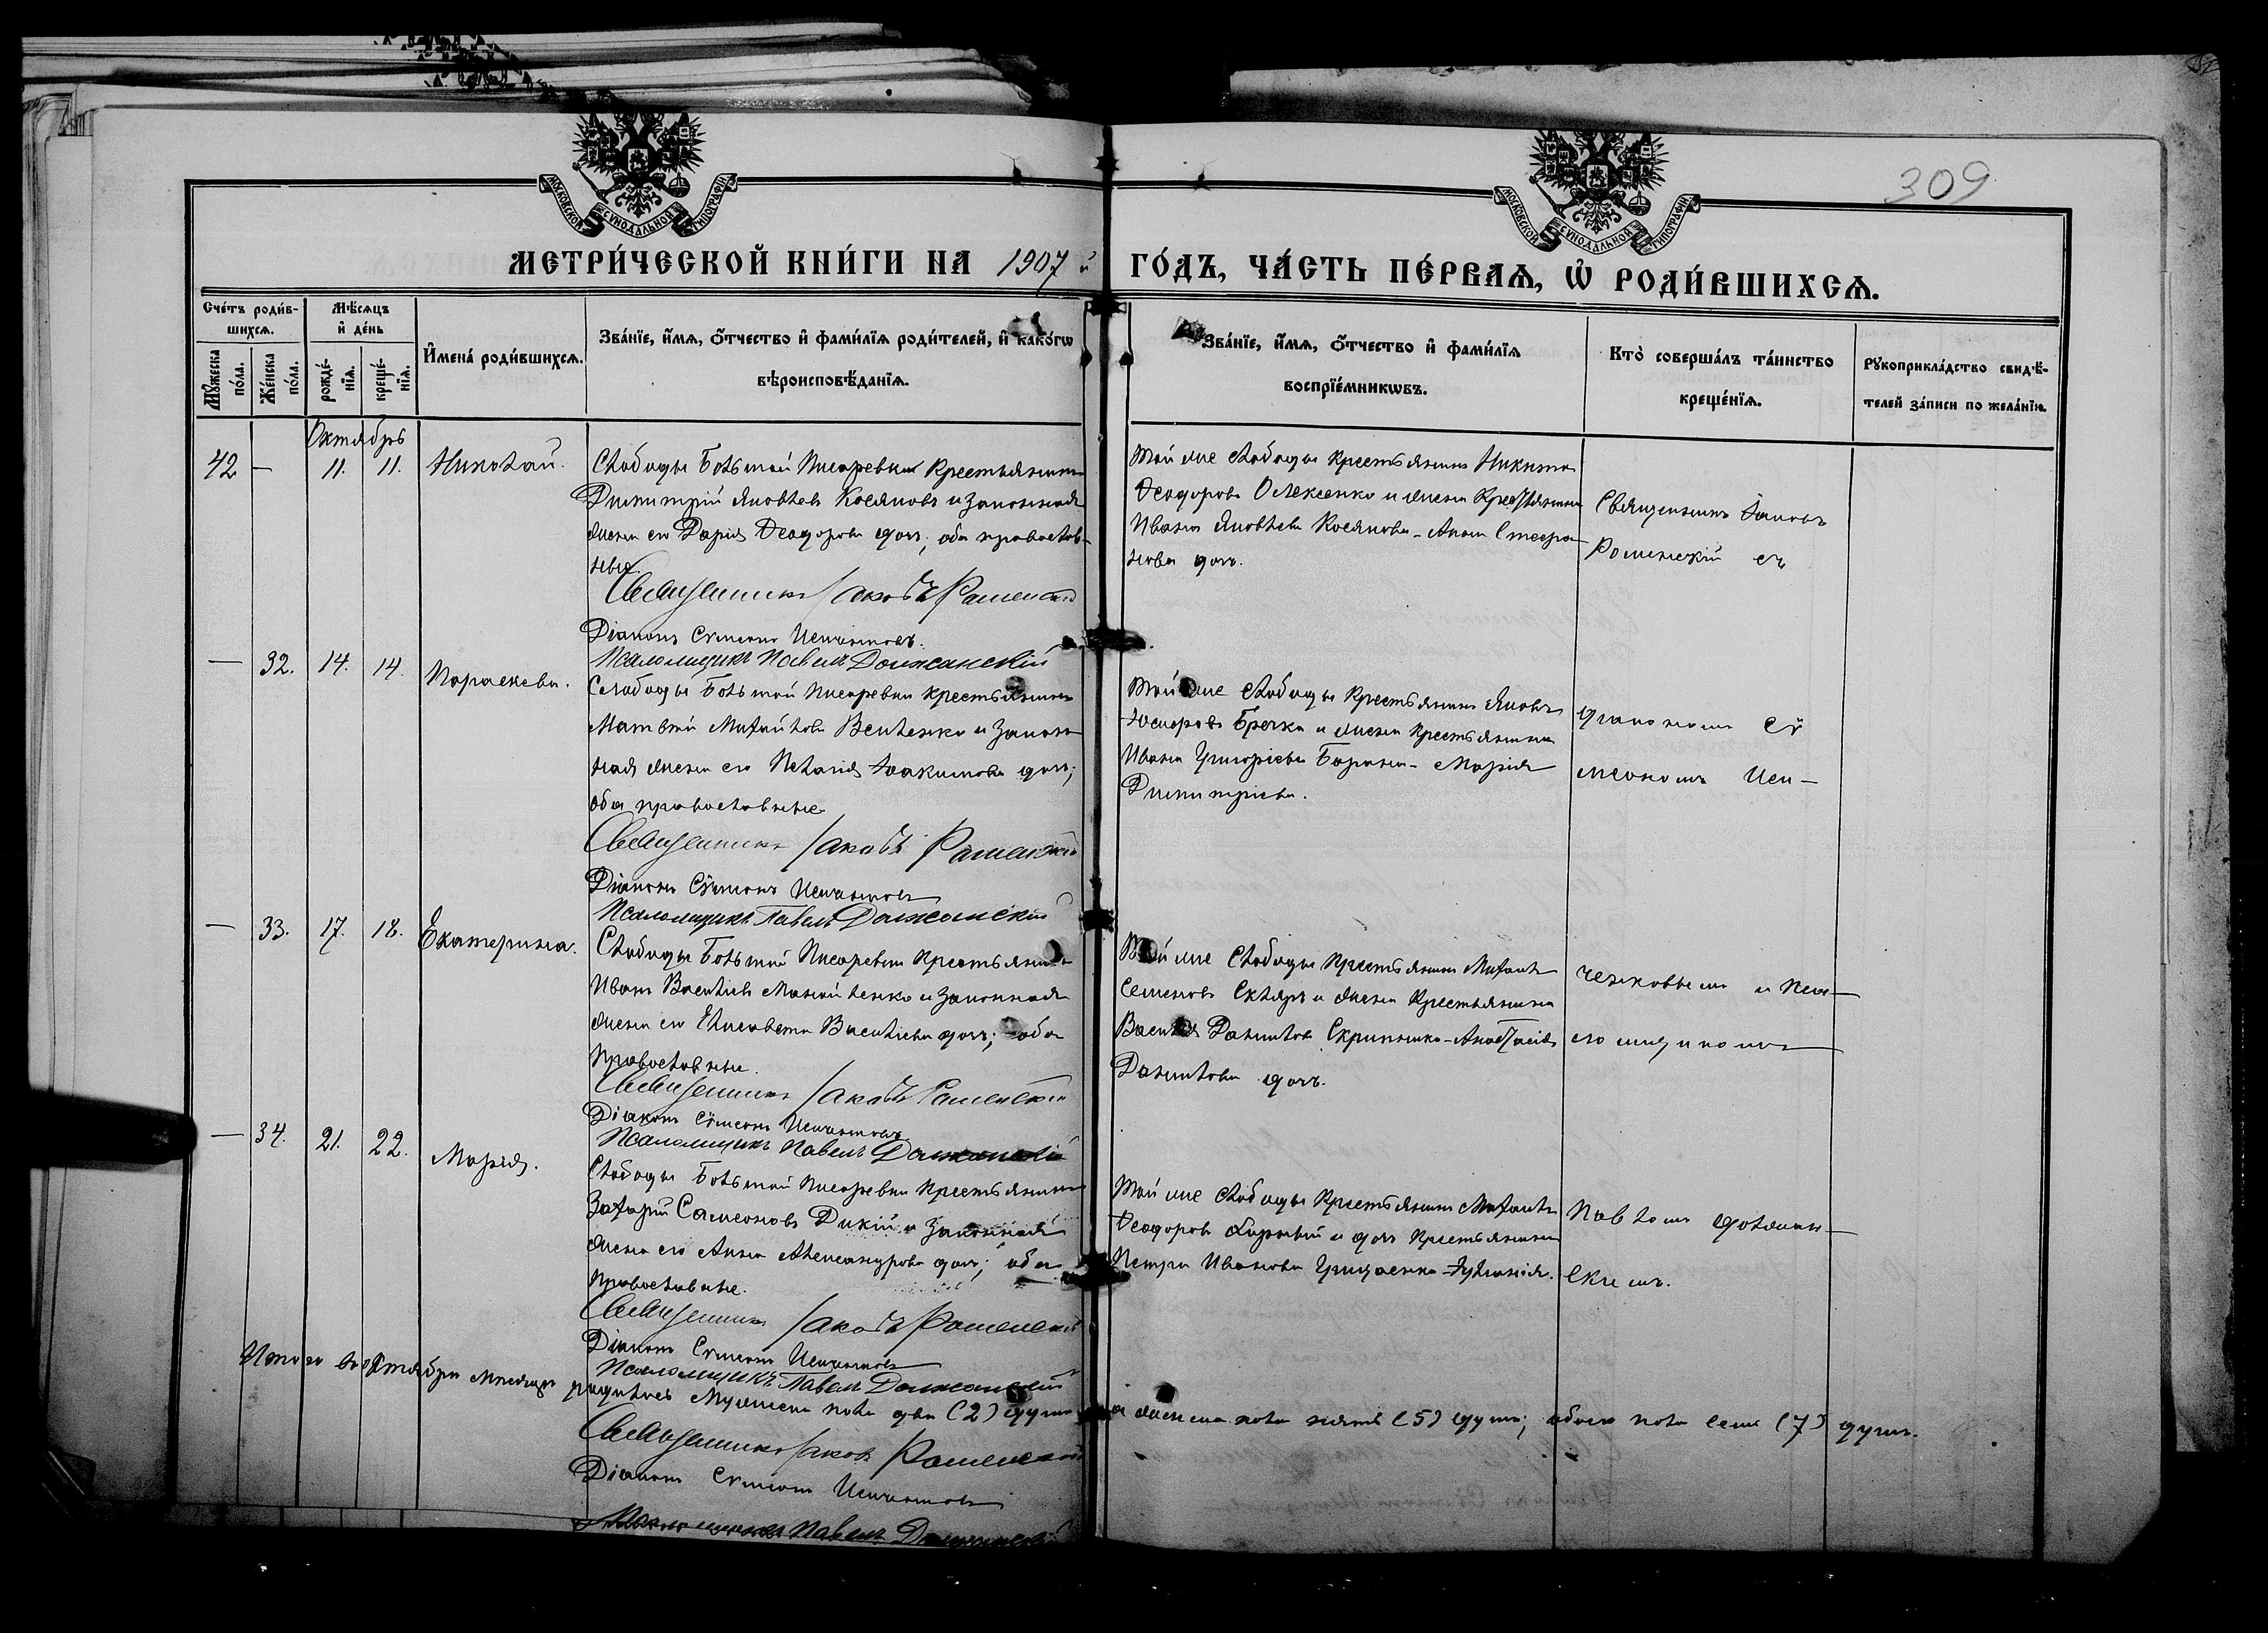 309
МОСКОВСКОЙ СУНОДАЛЬНОЙ ТИПОГРАФІИ
МОСКОВСКОЙ СУНОДАЛЬНОЙ ТИПОГРАФІИ
МЕТРИ́ЧЕСКОЙ КНИ́ГИ НА 1907 й ГО́ДЪ, ЧА́СТЬ ПЕ́РВАѦ, Ѡ҆ РОДИ́ВШИХСѦ.
Сче́тъ роди́в-
шихсѧ.
Мѣ́сѧцъ
и҆ де́нь
Мꙋ́жеска по́ла.
Же́нска по́ла.
рожде́-
нїѧ.
креще́-
нїѧ.
И҆мена̀ роди́вшихсѧ.
Зва́нїе, и҆́мѧ, ѻ҆́тчество и҆ фами́лїѧ роди́телей, и҆ како́гѡ
вѣроисповѣ́данїѧ.
Зва́нїе, и҆́мѧ, ѻ҆́тчество и҆ фами́лїѧ
воспрїе́мникѡвъ.
Кто̀ соверша́лъ та́инство
креще́нїѧ.
Рꙋкоприкла́дство свидѣ́-
телей за́писи по жела́нїю.
Октябрь
42 — 11. 11. Николай.
Слободы Большой Писаревки крестьянинъ
Димитрій Яковлевъ Косяковъ и законная
жена его Дарія Ѳеодорова дочь; оба православ-
ные.
Священникъ Іаковъ Раменскій
Діаконъ Сѵмеонъ
Псаломщикъ Павелъ Должанскій
Той же слободы крестьянинъ Никита
Ѳеодоровъ Олексенко и жена крестьянина
Ивана Яковлева Косякова - Анна Стефа-
нова дочь.
Священникъ Іаковъ
Раменскій съ
— 32. 14. 14. Параскева.
Слободы Большой Писаревки крестьянинъ
Матвѣй Михайловъ и закон-
ная жена его Пелагія Іоакимова дочь;
оба православные
Священникъ Іаковъ Раменскій
Діаконъ Сѵмеонъ
Псаломщикъ Павелъ Должанскій
Той же слободы крестьянинъ Яковъ
Бречка и жена крестьянина
Ивана Григоріева Барана - Марія
Димитріева.
діакономъ Сѵ-
меономъ
— 33. 17. 18. Екатерина.
Слободы Большой Писаревки крестьянинъ
Иванъ Васильевъ и законная
жена его Елисавета Васильева дочь; оба
православные.
Священникъ Іаковъ Раменскій
Діаконъ Сѵмеонъ
Псаломщикъ Павелъ Должанскій
Той же слободы крестьянинъ Михаилъ
Семеновъ Скляръ и жена крестьянина
Василія Данилова Скрипника - Анастасія
Данилова дочь.
и пса-
ломщикомъ
— 34. 21. 22. Марія.
Слободы Большой Писаревки крестьянинъ
Захарій Самсоновъ Дикій и законная
жена его Анна Александрова дочь; оба
православные.
Священникъ Іаковъ Раменскій
Діаконъ Сѵмеонъ
Псаломщикъ Павелъ Должанскій
Той же слободы крестьянинъ Михаилъ
Ѳеодоровъ и дочь крестьянина
Петра Иванова Грицаенка - Іуліанія.
Павломъ Должан-
скимъ.
Итого въ октябрѣ мѣсяцѣ родилось мужеска пола два (2) души а женска пола пять (5) душъ; обоего пола семь (7) душъ.
Священникъ Іаковъ Раменскій
Діаконъ Сѵмеонъ
Псаломщикъ Павелъ Должанскій